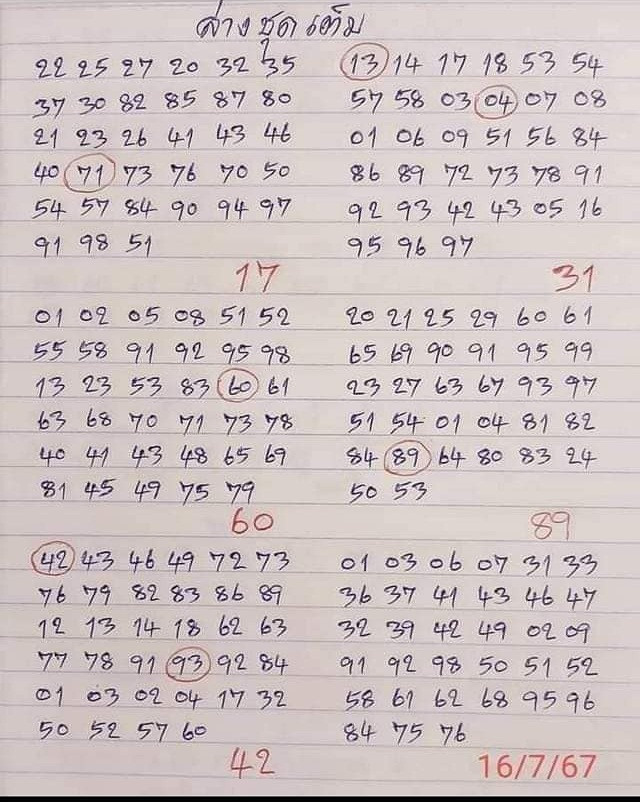 ล่างชุดเต็ม
22 25 27 20 32 35
37 30 82 85 87 80
21 23 26 41 43 46
40 71 73 76 70 50
54 57 84 90 94 97
91 98 51
17
13 14 17 18 53 54
57 58 03 04 07 08
01 06 09 51 56 84
86 89 72 73 78 91
92 93 42 43 05 16
95 96 97
31
01 02 05 08 51 52
55 58 91 92 95 98
13 23 53 83 60 61
63 68 70 71 73 78
40 41 43 48 65 69
81 45 49 75 79
60
20 21 25 29 60 61
65 69 90 91 95 99
23 27 63 67 93 97
51 54 01 04 81 82
84 89 64 80 83 24
50 53
89
42 43 46 49 72 73
76 79 82 83 86 89
12 13 14 18 62 63
77 78 91 93 92 84
01 03 02 04 17 32
50 52 57 60
42
01 03 06 07 31 33
36 37 41 43 46 47
32 39 42 49 02 09
91 92 98 50 51 52
58 61 62 68 95 96
84 75 76
16/7/67